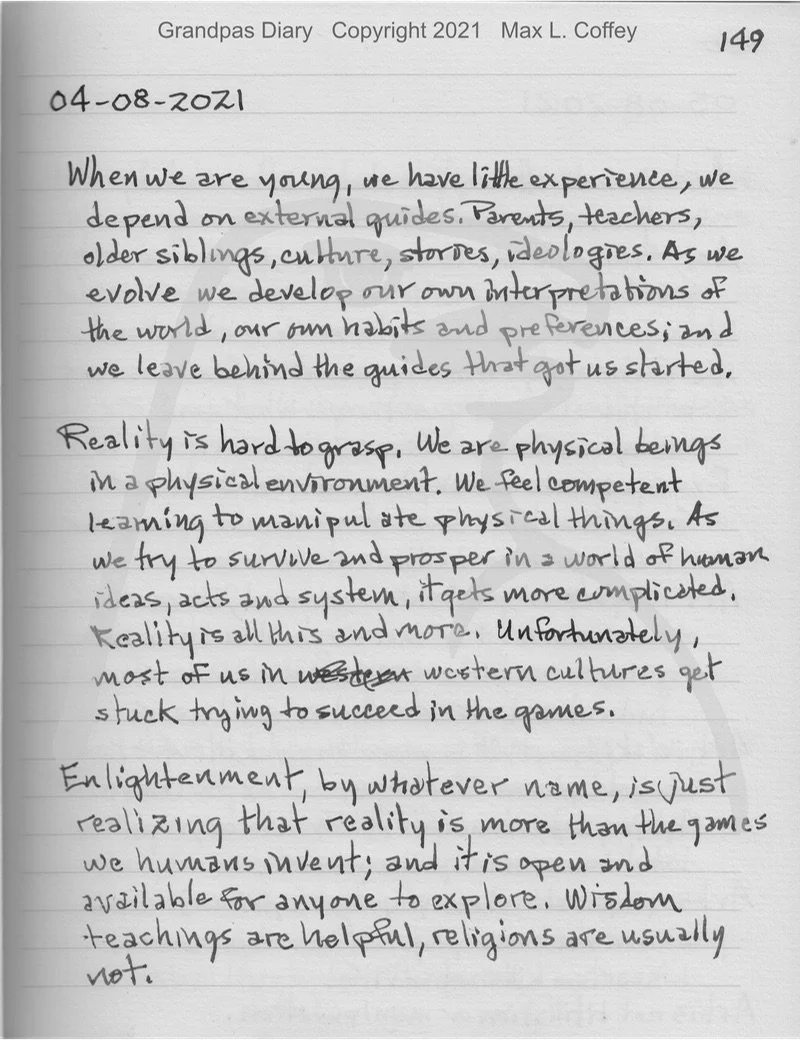 Grandpas Diary Copyright 2021 Max L. Coffey
149
04-08-2021
When we are young, we have little experience, we
depend on external guides. Parents, teachers,
older siblings, culture, stories, ideologies. As we
evolve we develop our own interpretations of
the world, our own habits and preferences; and
we leave behind the guides that got us started.
Reality is hard to grasp. We are physical beings
in a physical environment. We feel competent
learning to manipulate physical things. As
we try to survive and prosper in a world of human
ideas, acts and system, it gets more complicated.
Reality is all this and more. Unfortunately,
most of us in western western cultures get
stuck trying to succeed in the games.
Enlightenment, by whatever name, is just
realizing that reality is more than the games
we humans invent; and it is open and
available for anyone to explore. Wisdom
teachings are helpful, religions are usually
not.